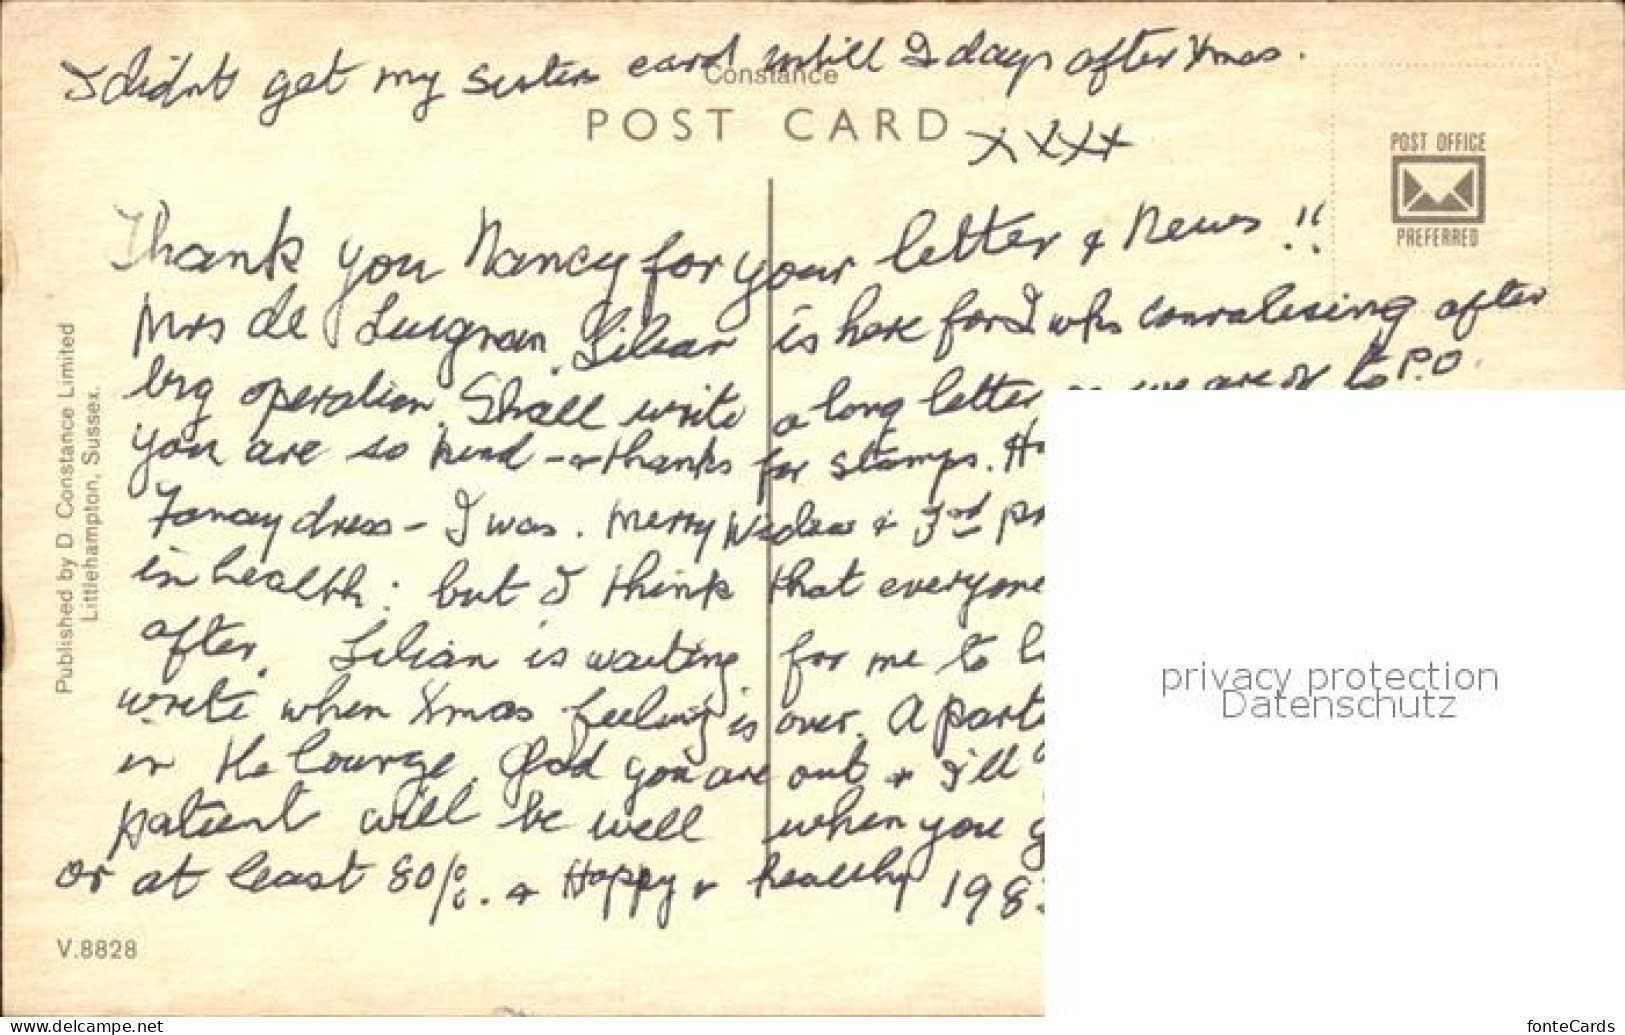 I didnt get my sisters card untill 2 days after Xmas.
Constance
POST CARD
XXXX
POST OFFICE
PREFERRED
Thank you Nancy for your letter & News !!
Mrs de Lusignan. Lilian is here for 2 wks convalescing after
big operation. Shall write a long letter we are to P.O.
you are so kind - & thanks for stamps.
Fancy dress - I was. Merry Widow & 3rd
in health: but I think that everyone
after. Lilian is waiting for me to
write when Xmas feeling is over. A
in the lounge. Glad you are out & I'll
patient will be well when you
or at least 80%. & Happy & healthy 198
Published by D Constance Limited
Littlehampton, Sussex.
V.8828
privacy protection
Datenschutz
www.delcampe.net
fonteCards